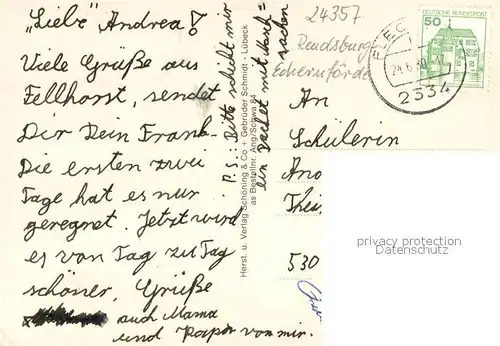 "Liebe" Andrea!
Viele Grüße aus
Fellhorst, sendet
Dir Dein Frank.
Die ersten zwei
Tage hat es nur
geregnet. Jetzt wird
es von Tag zu Tag
schöner. Grüße
auch Mama
und Papa von mir.
P.S.: Bitte schickt mir
ein Packet mit Nasch=
sachen
Herst. u. Verlag Schöning & Co + Gebrüder Schmidt - Lübeck
as Bestellnr. Ang/Schwa 84
24357
Rendsburg
Eckernförde
DEUTSCHE BUNDESPOST
50
FLEC
24.6.80
2334
An
Schülerin
530
privacy protection
Datenschutz